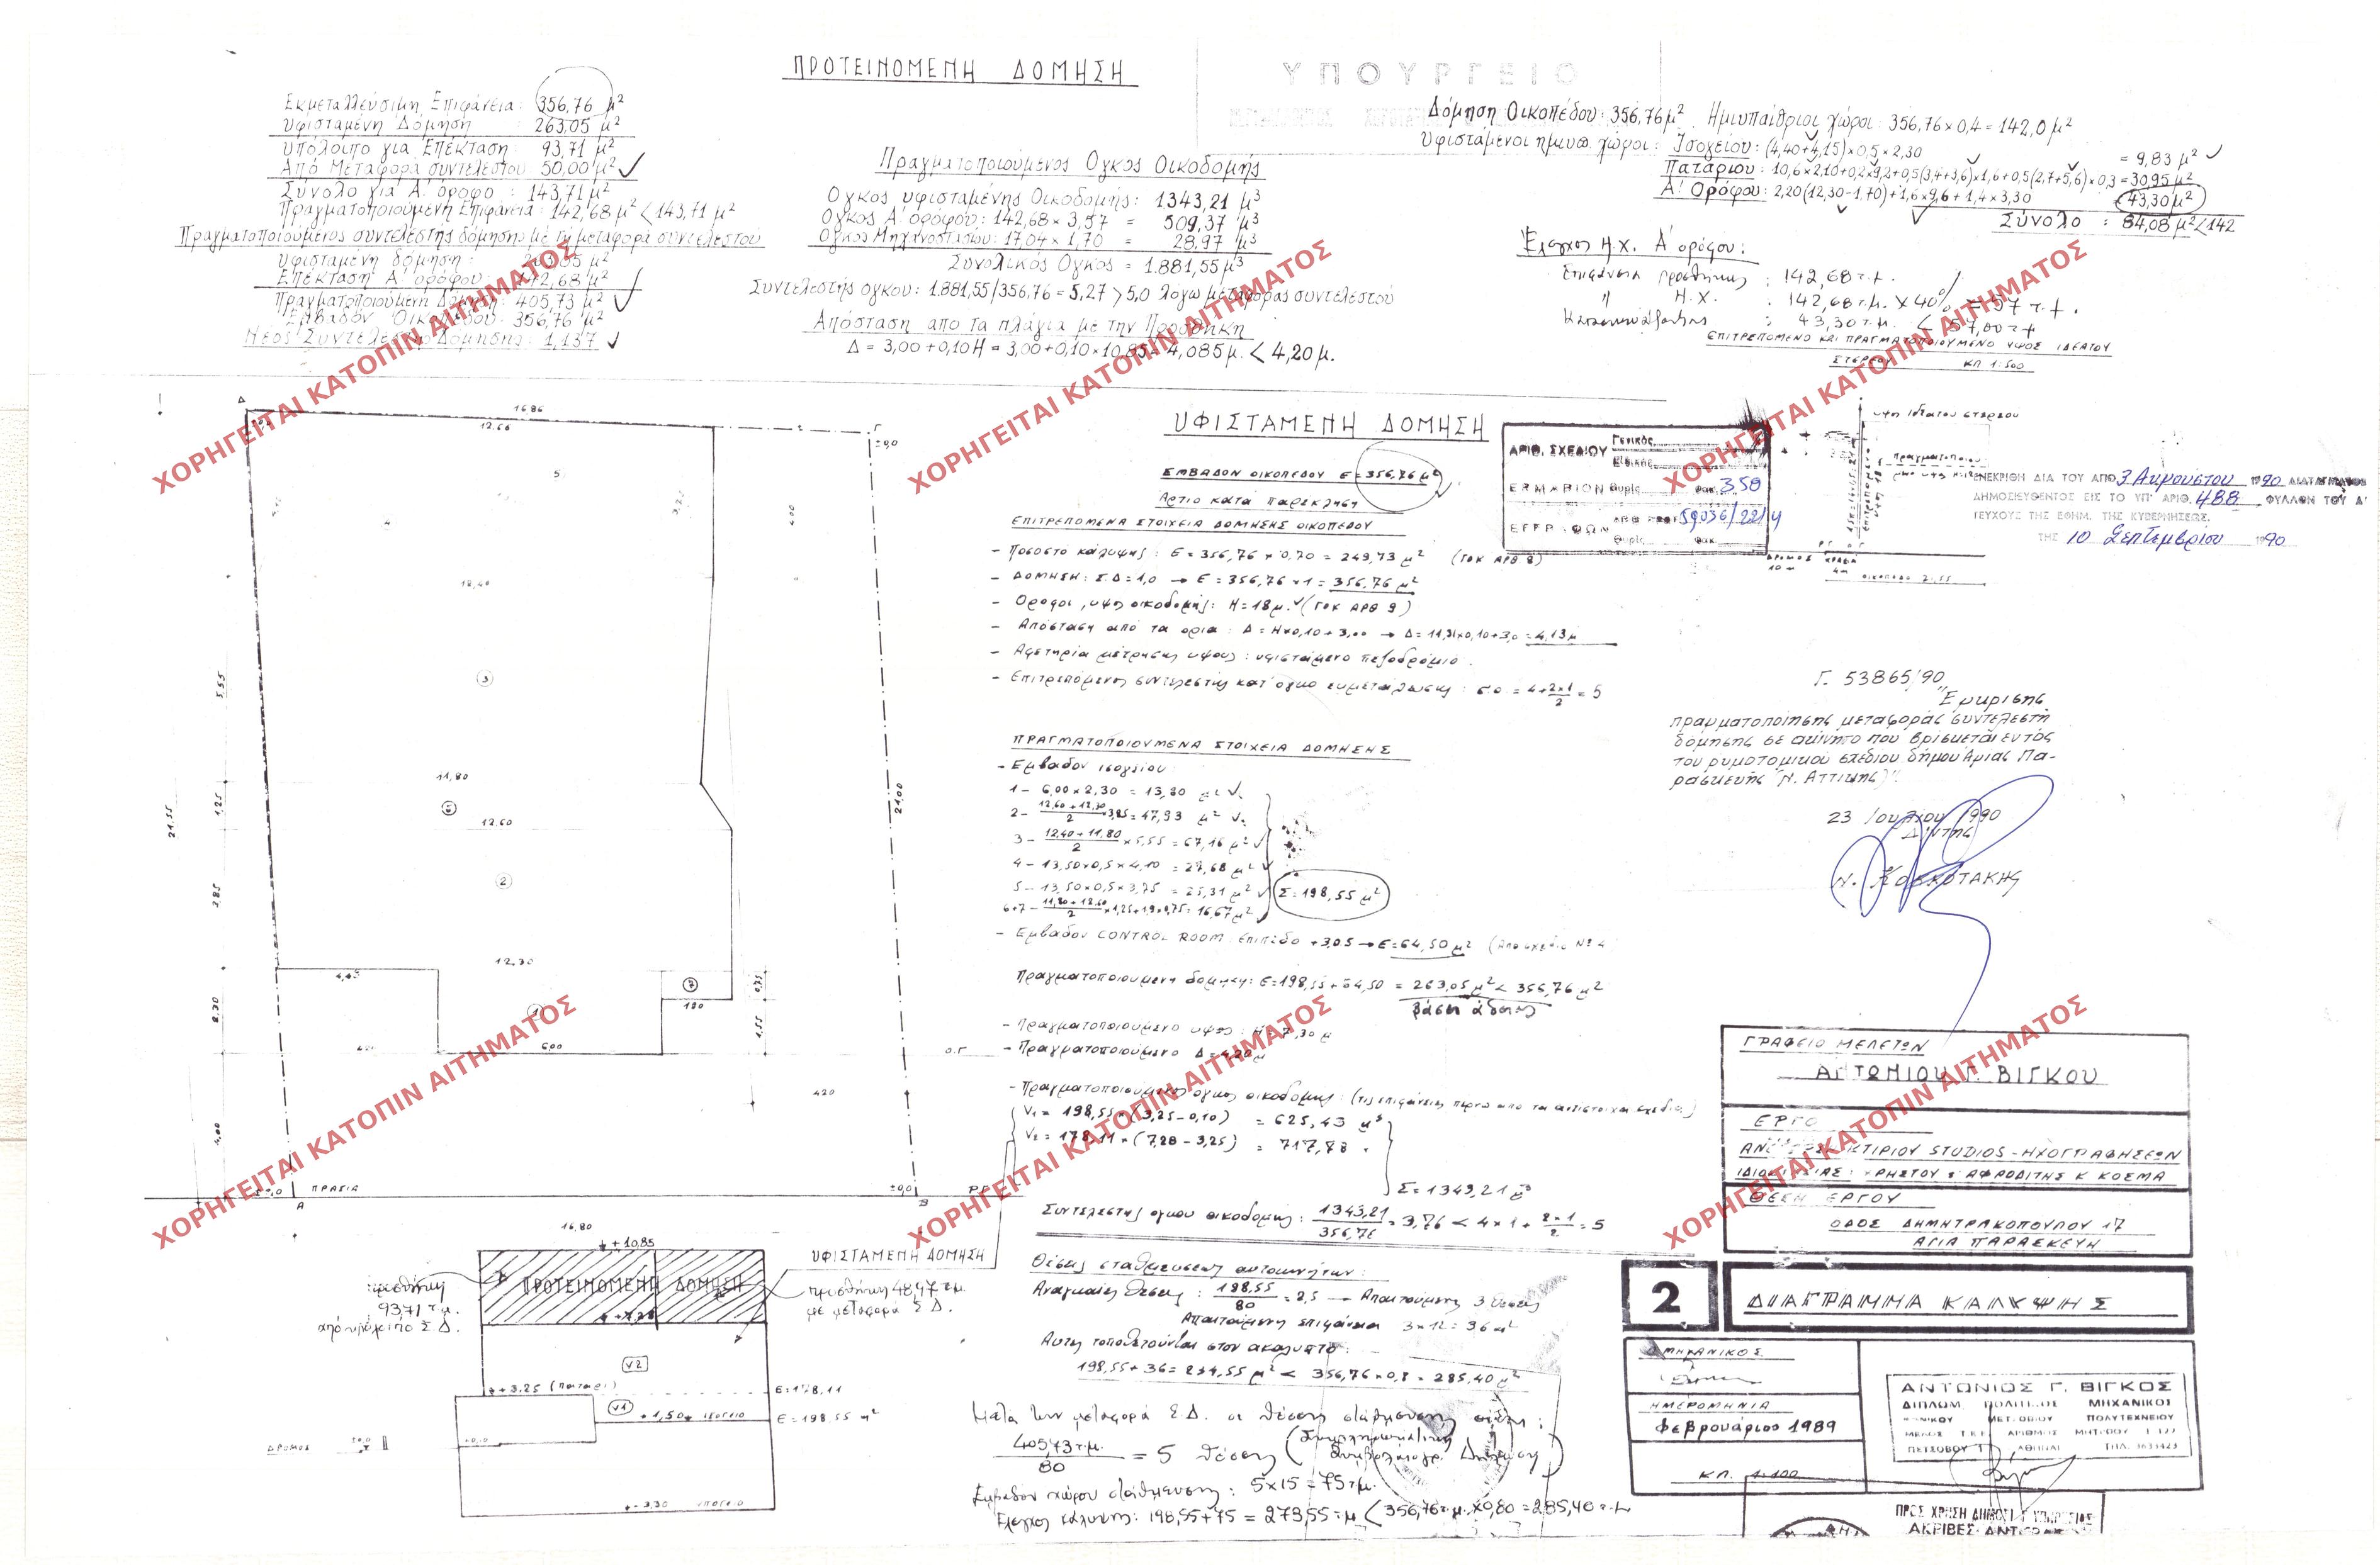 ΠΡΟΤΕΙΝΟΜΕΝΗ ΔΟΜΗΣΗ
ΥΠΟΥΡΓΕΙΟ
Εκμεταλλεύσιμη Επιφάνεια: 356,76 μ²
Υφισταμένη Δόμηση : 263,05 μ²
Υπόλοιπο για Επέκταση: 93,71 μ²
Από Μεταφορά συντελεστού 50,00 μ² ✓
Σύνολο για Α' όροφο : 143,71 μ²
Πραγματοποιουμένη Επιφάνεια: 142,68 μ² < 143,71 μ²
Πραγματοποιούμενος συντελεστής δόμησης με τη μεταφορά συντελεστού
Υφισταμένη δόμηση : 263,05 μ²
Επέκταση Α' ορόφου: 142,68 μ²
Πραγματοποιουμένη Δόμηση: 405,73 μ² ✓
Εμβαδόν Οικοπέδου: 356,76 μ²
Νέος Συντελεστής Δόμησης: 1,137 ✓
Πραγματοποιούμενος Όγκος Οικοδομής
Όγκος υφισταμένης Οικοδομής: 1343,21 μ³
Όγκος Α' ορόφου: 142,68 × 3,57 = 509,37 μ³
Όγκος Μηχανοστασίου: 17,04 × 1,70 = 28,97 μ³
Συνολικός Όγκος = 1.881,55 μ³
Συντελεστής όγκου: 1.881,55/356,76 = 5,27 > 5,0 λόγω μεταφοράς συντελεστού
Απόσταση απο τα πλάγια με την Προσθήκη
Δ = 3,00 + 0,10 Η = 3,00 + 0,10 × 10,85 = 4,085 μ. < 4,20 μ.
Δόμηση Οικοπέδου: 356,76 μ² Ημιυπαίθριοι χώροι: 356,76 × 0,4 = 142,0 μ²
Υφιστάμενοι ημιυπ. χώροι: Ισογείου: (4,40+4,15)×0,5×2,30 = 9,83 μ² ✓
Παταριου: 10,6×2,10+0,2×9,2+0,5(3,4+3,6)×1,6+0,5(2,7+5,6)×0,3 = 30,95 μ²
Α' Ορόφου: 2,20(12,30-1,70)+1,6×9,6+1,4×3,30 = 43,30 μ²
Σύνολο : 84,08 μ² < 142
Έλεγχος Η.Χ. Α' ορόφου:
Επιφάνεια προσθήκης : 142,68 τ.μ.
" Η.Χ. : 142,68 τ.μ. × 40% = 57 τ.μ.
: 43,30 τ.μ. < 57,00 τμ
ΕΠΙΤΡΕΠΟΜΕΝΟ ΚΑΙ ΠΡΑΓΜΑΤΟΠΟΙΟΥΜΕΝΟ ΥΨΟΣ ΙΔΕΑΤΟΥ
ΣΤΕΡΕΟΥ ΚΛ 1:500
ΥΦΙΣΤΑΜΕΝΗ ΔΟΜΗΣΗ
ΕΜΒΑΔΟΝ ΟΙΚΟΠΕΔΟΥ Ε = 356,76 μ²
Άρτιο κατά παρέκλιση
ΕΠΙΤΡΕΠΟΜΕΝΑ ΣΤΟΙΧΕΙΑ ΔΟΜΗΣΗΣ ΟΙΚΟΠΕΔΟΥ
– Ποσοστό κάλυψης : Ε = 356,76 × 0,70 = 249,73 μ² (ΓΟΚ ΑΡΘ 8)
– ΔΟΜΗΣΗ: Σ.Δ = 1,0 → Ε = 356,76 × 1 = 356,76 μ²
– Όροφοι, υψη οικοδομής: Η = 18 μ. (ΓΟΚ ΑΡΘ 9)
– Απόσταση από τα ορια : Δ = Η×0,10 + 3,00 → Δ = 11,31×0,10+3,0 = 4,13 μ
– Αφετηρία μέτρησης υψους : υφιστάμενο πεζοδρόμιο.
– Επιτρεπόμενος συντελεστής κατ' όγκο εκμετάλλευσης : σ.ο = 4 + 2×1/2 = 5
ΑΡΙΘ. ΣΧΕΔΙΟΥ Γενικός
Ειδικός
ΕΡΜΑΡΙΟΝ Θυρίς φακ. 350
ΕΓΓΡΑΦΩΝ ΑΡΘ ΠΡΩΤ 59036/2214
Θυρίς φακ.
υψη ιδεατού στερεού
ΔΡΟΜΟΣ 10 μ
4 μ
ΟΙΚΟΠΕΔΟ 21.55
ΕΝΕΚΡΙΘΗ ΔΙΑ ΤΟΥ ΑΠΟ 3 Αυγούστου 1990 ΔΙΑΤΑΓΜΑΤΟΣ
ΔΗΜΟΣΙΕΥΘΕΝΤΟΣ ΕΙΣ ΤΟ ΥΠ' ΑΡΙΘ. 488 ΦΥΛΛΟΝ ΤΟΥ Δ'
ΤΕΥΧΟΥΣ ΤΗΣ ΕΦΗΜ. ΤΗΣ ΚΥΒΕΡΝΗΣΕΩΣ.
ΤΗΣ 10 Σεπτεμβρίου 1990
Γ. 53865/90
"Έγκρισης
πραγματοποίησης μεταφοράς συντελεστή
δόμησης σε ακίνητο που βρίσκεται εντός
του ρυμοτομικού σχεδίου δήμου Αγίας Πα-
ρασκευής (Ν. Αττικής)".
23 Ιουλίου 1990
Δ/ντης
ΠΡΑΓΜΑΤΟΠΟΙΟΥΜΕΝΑ ΣΤΟΙΧΕΙΑ ΔΟΜΗΣΗΣ
– Εμβαδον ισογείου
1 – 6,00 × 2,30 = 13,80 μ²
2 – 12,60 + 12,30/2 × 3,85 = 47,93 μ²
3 – 12,40 + 11,80/2 × 5,55 = 67,16 μ²
4 – 13,50×0,5×4,10 = 27,68 μ²
5 – 13,50×0,5×3,75 = 25,31 μ²
6+7 – 11,80 + 12,60/2 × 1,25 + 1,9×0,75 = 16,67 μ²
Σ = 198,55 μ²
– Εμβαδον CONTROL ROOM επιπέδο +3,05 → Ε = 64,50 μ² (Απο σχέδιο Νο 4
Πραγματοποιουμενη δομηση: Ε = 198,55 + 64,50 = 263,05 μ² < 356,76 μ²
βάσει άδειας
– Πραγματοποιούμενο υψος : Η = 7,30 μ
– Πραγματοποιούμενο Δ = 4,20 μ
– Πραγματοποιούμενος όγκος οικοδομής : (τις επιφάνειες πέρνω απο τα αντίστοιχα σχέδια)
V₁ = 198,55 × (3,25 – 0,10) = 625,43 μ³
V₂ = 178,11 × (7,28 – 3,25) = 717,78
Σ = 1343,21 μ³
Συντελεστής ογκου οικοδομής : 1343,21/356,76 = 3,76 < 4×1 + 2×1/2 = 5
Θέσεις σταθμευσεων αυτοκινήτων:
Αναγκαίες θέσεις : 198,55/80 = 2,5 → Απαιτούμενη 3 θέσεις
Απαιτούμενη επιφάνεια 3×12 = 36 μ²
Αυτές τοποθετούνται στον ακάλυπτο.
198,55 + 36 = 234,55 μ² < 356,76 × 0,8 = 285,40 μ²
Μετά την μεταφορά Σ.Δ. οι θέσεις στάθμευσης είναι:
405,73 τ.μ./80 = 5 θέσεις
Εμβαδον χώρου στάθμευσης: 5×15 = 75 τμ.
Έλεγχος κάλυψης: 198,55+75 = 273,55 τ.μ < 356,76 τ.μ. × 0,80 = 285,40 τ.μ
Δ
16,86
12,66
Γ
±0,0
5
4
12,40
3
5,55
11,80
6
1,25
12,60
2
3,85
21,55
21,00
12,30
4,45
7
190
0,75
1
2,30
1,55
6,00
Ο.Γ
420
4,00
ΠΡΑΣΙΑ
±0,0
Α
Β
Ρ.Γ
16,80
+10,85
ΠΡΟΤΕΙΝΟΜΕΝΗ ΔΟΜΗΣΗ
ΥΦΙΣΤΑΜΕΝΗ ΔΟΜΗΣΗ
προσθήκη
93,71 τ.μ.
από υπόλοιπο Σ.Δ.
προσθήκη 48,97 τ.μ.
με μεταφορά Σ.Δ.
V2
+3,25 (παταρι)
Ε=178,11
V1
+1,50 ΙΣΟΓΕΙΟ
Ε=198,55 μ²
ΔΡΟΜΟΣ
±0,0
-3,30 ΥΠΟΓΕΙΟ
ΓΡΑΦΕΙΟ ΜΕΛΕΤΩΝ
ΑΝΤΩΝΙΟΥ Γ. ΒΙΓΚΟΥ
ΕΡΓΟ
ΚΤΙΡΙΟΥ STUDIOS - ΗΧΟΓΡΑΦΗΣΕΩΝ
ΙΔΙΟΚΤΗΣΙΑΣ: ΧΡΗΣΤΟΥ & ΑΦΡΟΔΙΤΗΣ Κ ΚΟΣΜΑ
ΘΕΣΗ ΕΡΓΟΥ
ΟΔΟΣ ΔΗΜΗΤΡΑΚΟΠΟΥΛΟΥ 17
ΑΓΙΑ ΠΑΡΑΣΚΕΥΗ
2
ΔΙΑΓΡΑΜΜΑ ΚΑΛΥΨΗΣ
Ο ΜΗΧΑΝΙΚΟΣ
ΗΜΕΡΟΜΗΝΙΑ
Φεβρουάριος 1989
ΚΛ. 1:100
ΑΝΤΩΝΙΟΣ Γ. ΒΙΓΚΟΣ
ΔΙΠΛΩΜ. ΠΟΛΙΤΙΚΟΣ ΜΗΧΑΝΙΚΟΣ
ΜΕΤΣΟΒΙΟΥ ΠΟΛΥΤΕΧΝΕΙΟΥ
ΜΕΛΟΣ Τ.Ε.Ε. ΑΡΙΘΜΟΣ ΜΗΤΡΩΟΥ
ΠΕΤΣΟΒΟΥ ΑΘΗΝΑΙ ΤΗΛ. 3633423
ΠΡΟΣ ΧΡΗΣΗ ΔΗΜΟΣΙΑΣ ΥΠΗΡΕΣΙΑΣ
ΑΚΡΙΒΕΣ ΑΝΤΙΓΡΑΦΟ
ΧΟΡΗΓΕΙΤΑΙ ΚΑΤΟΠΙΝ ΑΙΤΗΜΑΤΟΣ
ΧΟΡΗΓΕΙΤΑΙ ΚΑΤΟΠΙΝ ΑΙΤΗΜΑΤΟΣ
ΧΟΡΗΓΕΙΤΑΙ ΚΑΤΟΠΙΝ ΑΙΤΗΜΑΤΟΣ
ΧΟΡΗΓΕΙΤΑΙ ΚΑΤΟΠΙΝ ΑΙΤΗΜΑΤΟΣ
ΧΟΡΗΓΕΙΤΑΙ ΚΑΤΟΠΙΝ ΑΙΤΗΜΑΤΟΣ
ΧΟΡΗΓΕΙΤΑΙ ΚΑΤΟΠΙΝ ΑΙΤΗΜΑΤΟΣ